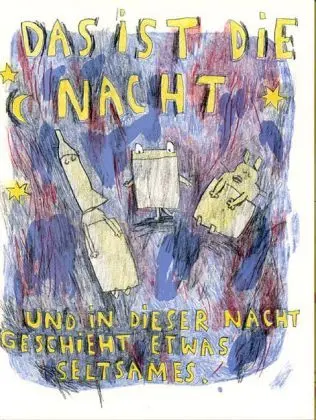 DAS IST DIE
NACHT
UND IN DIESER NACHT
GESCHIEHT ETWAS
SELTSAMES.